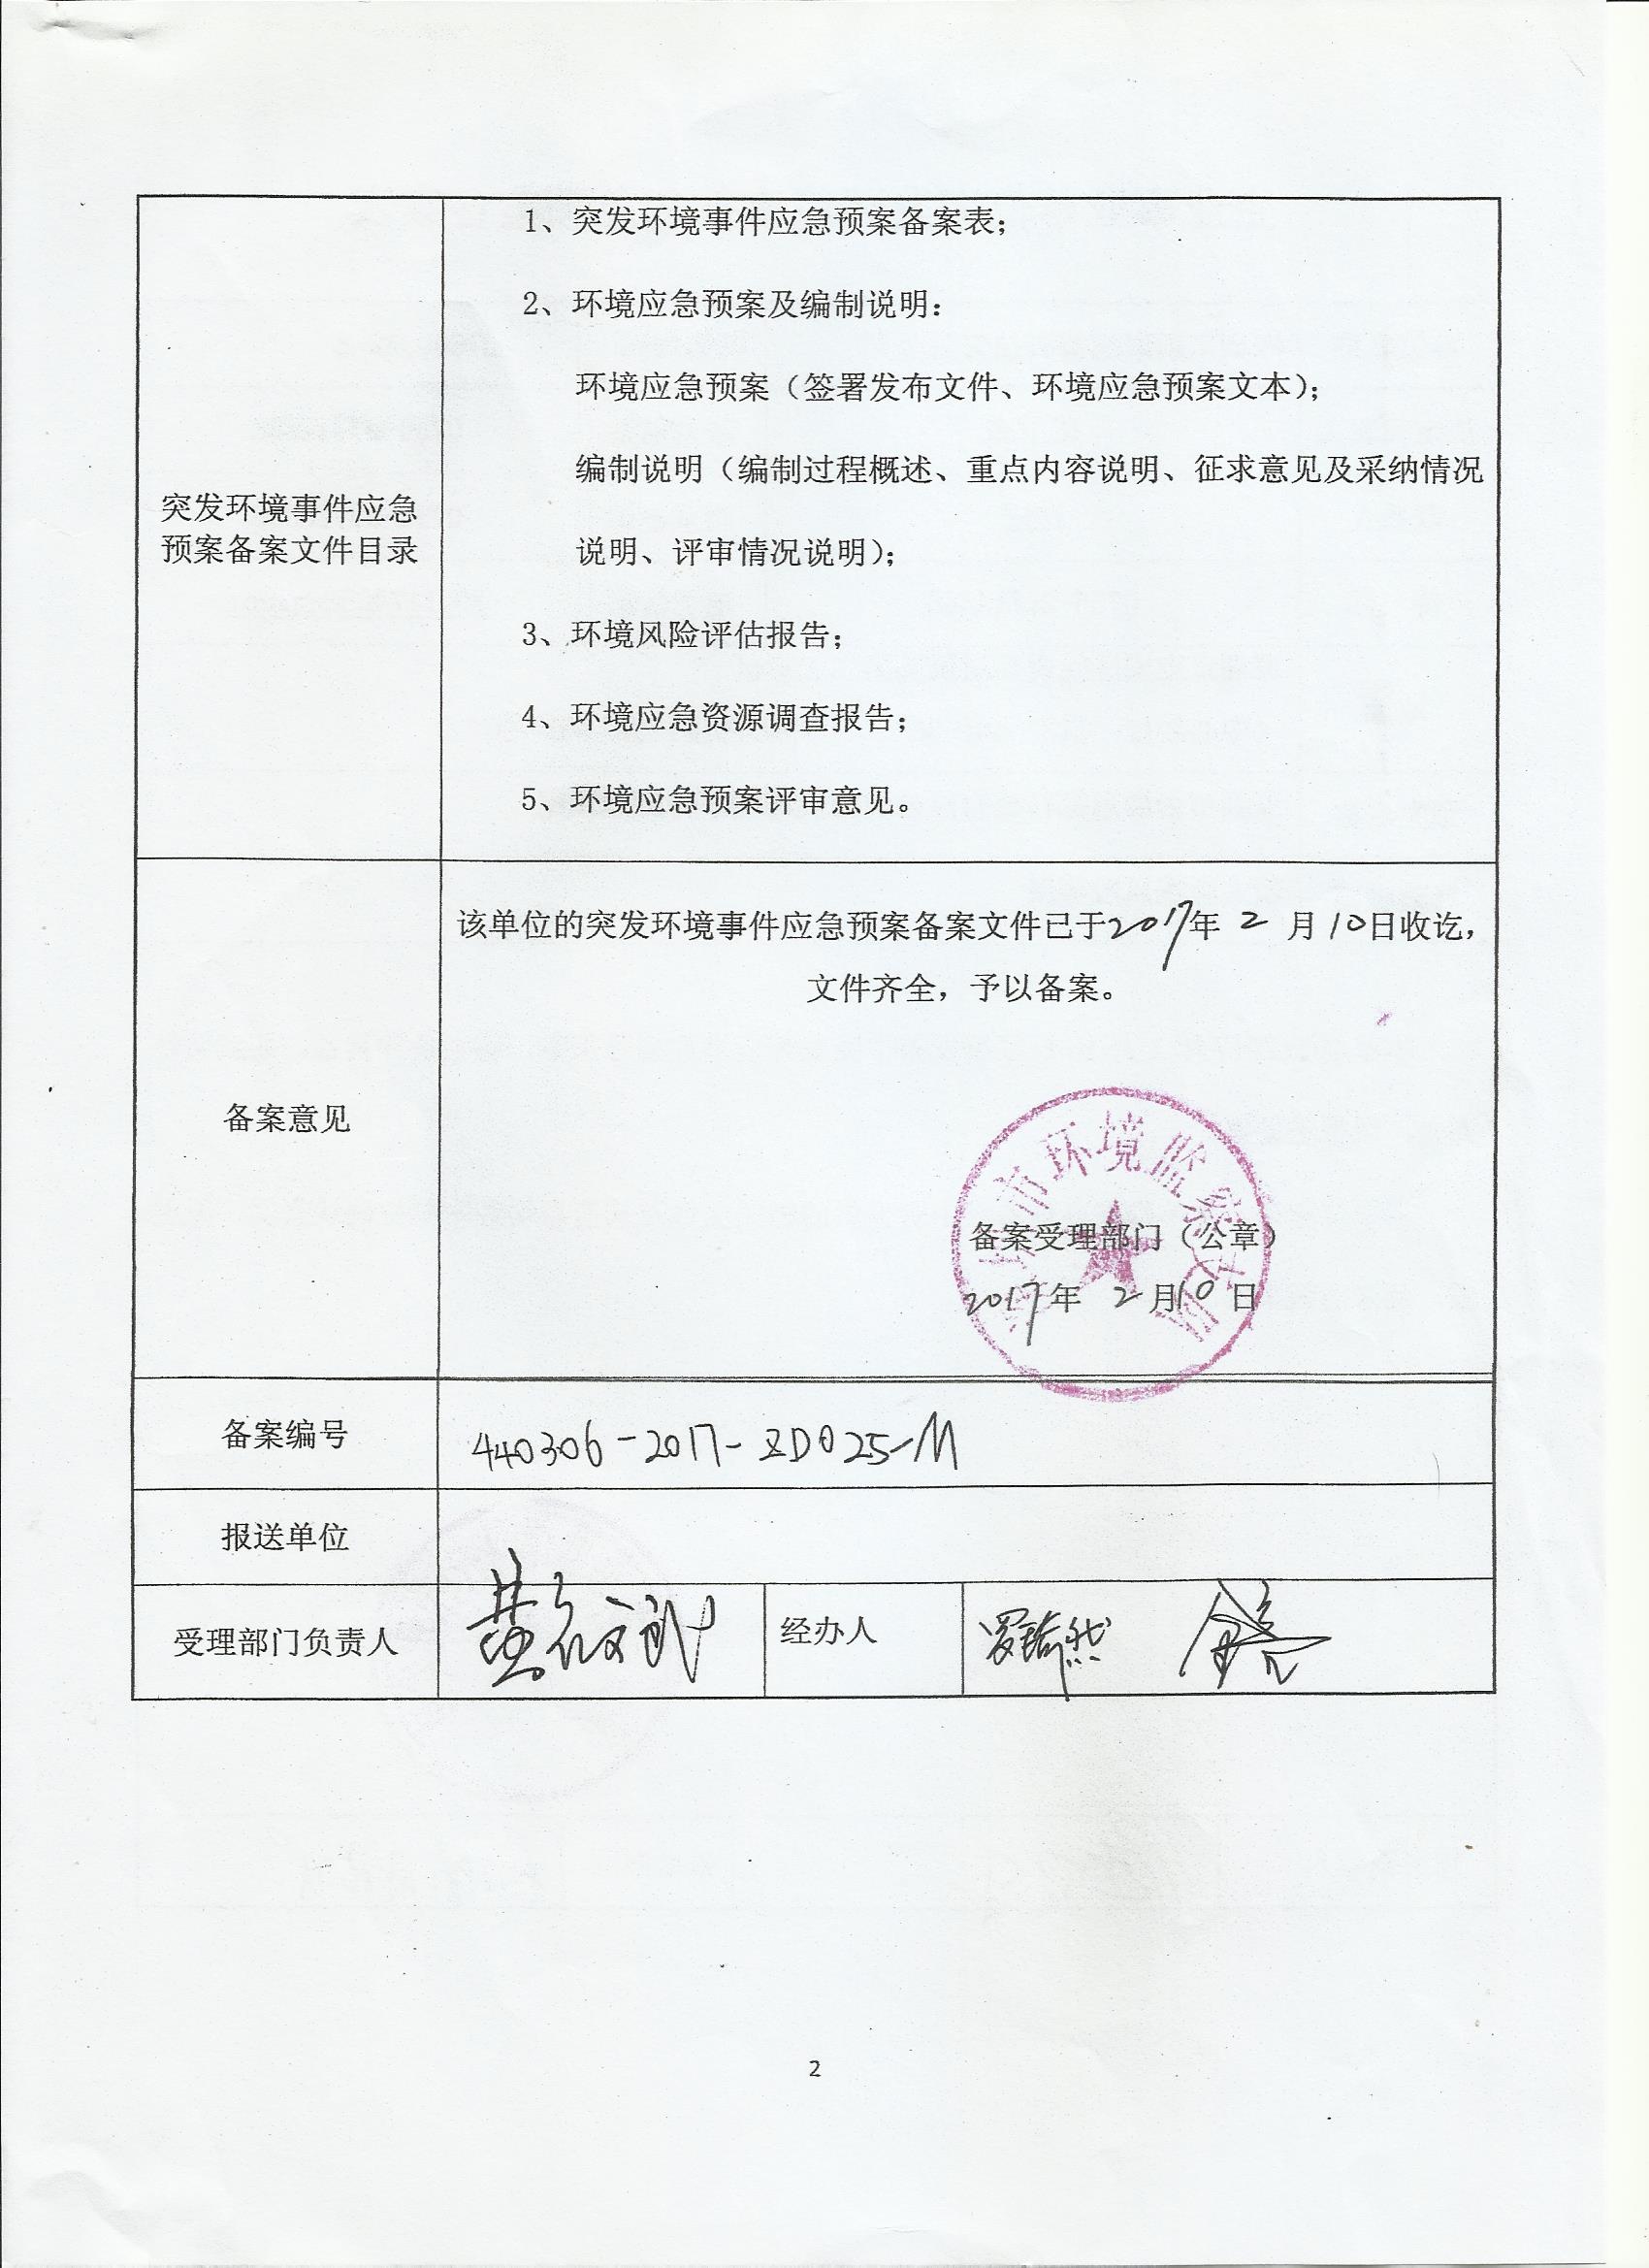 1、突发环境事件应急预案备案表；
2、环境应急预案及编制说明：
环境应急预案（签署发布文件、环境应急预案文本）；
编制说明（编制过程概述、重点内容说明、征求意见及采纳情况
说明、评审情况说明）；
突发环境事件应急
预案备案文件目录
3、环境风险评估报告；
4、环境应急资源调查报告；
5、环境应急预案评审意见。
该单位的突发环境事件应急预案备案文件已于2017年 2 月10日收讫，
文件齐全，予以备案。
备案意见
市环境监察支队
备案受理部门（公章）
2017年 2 月10 日
备案编号
440306-2017-ZD025-M
报送单位
受理部门负责人
经办人
2